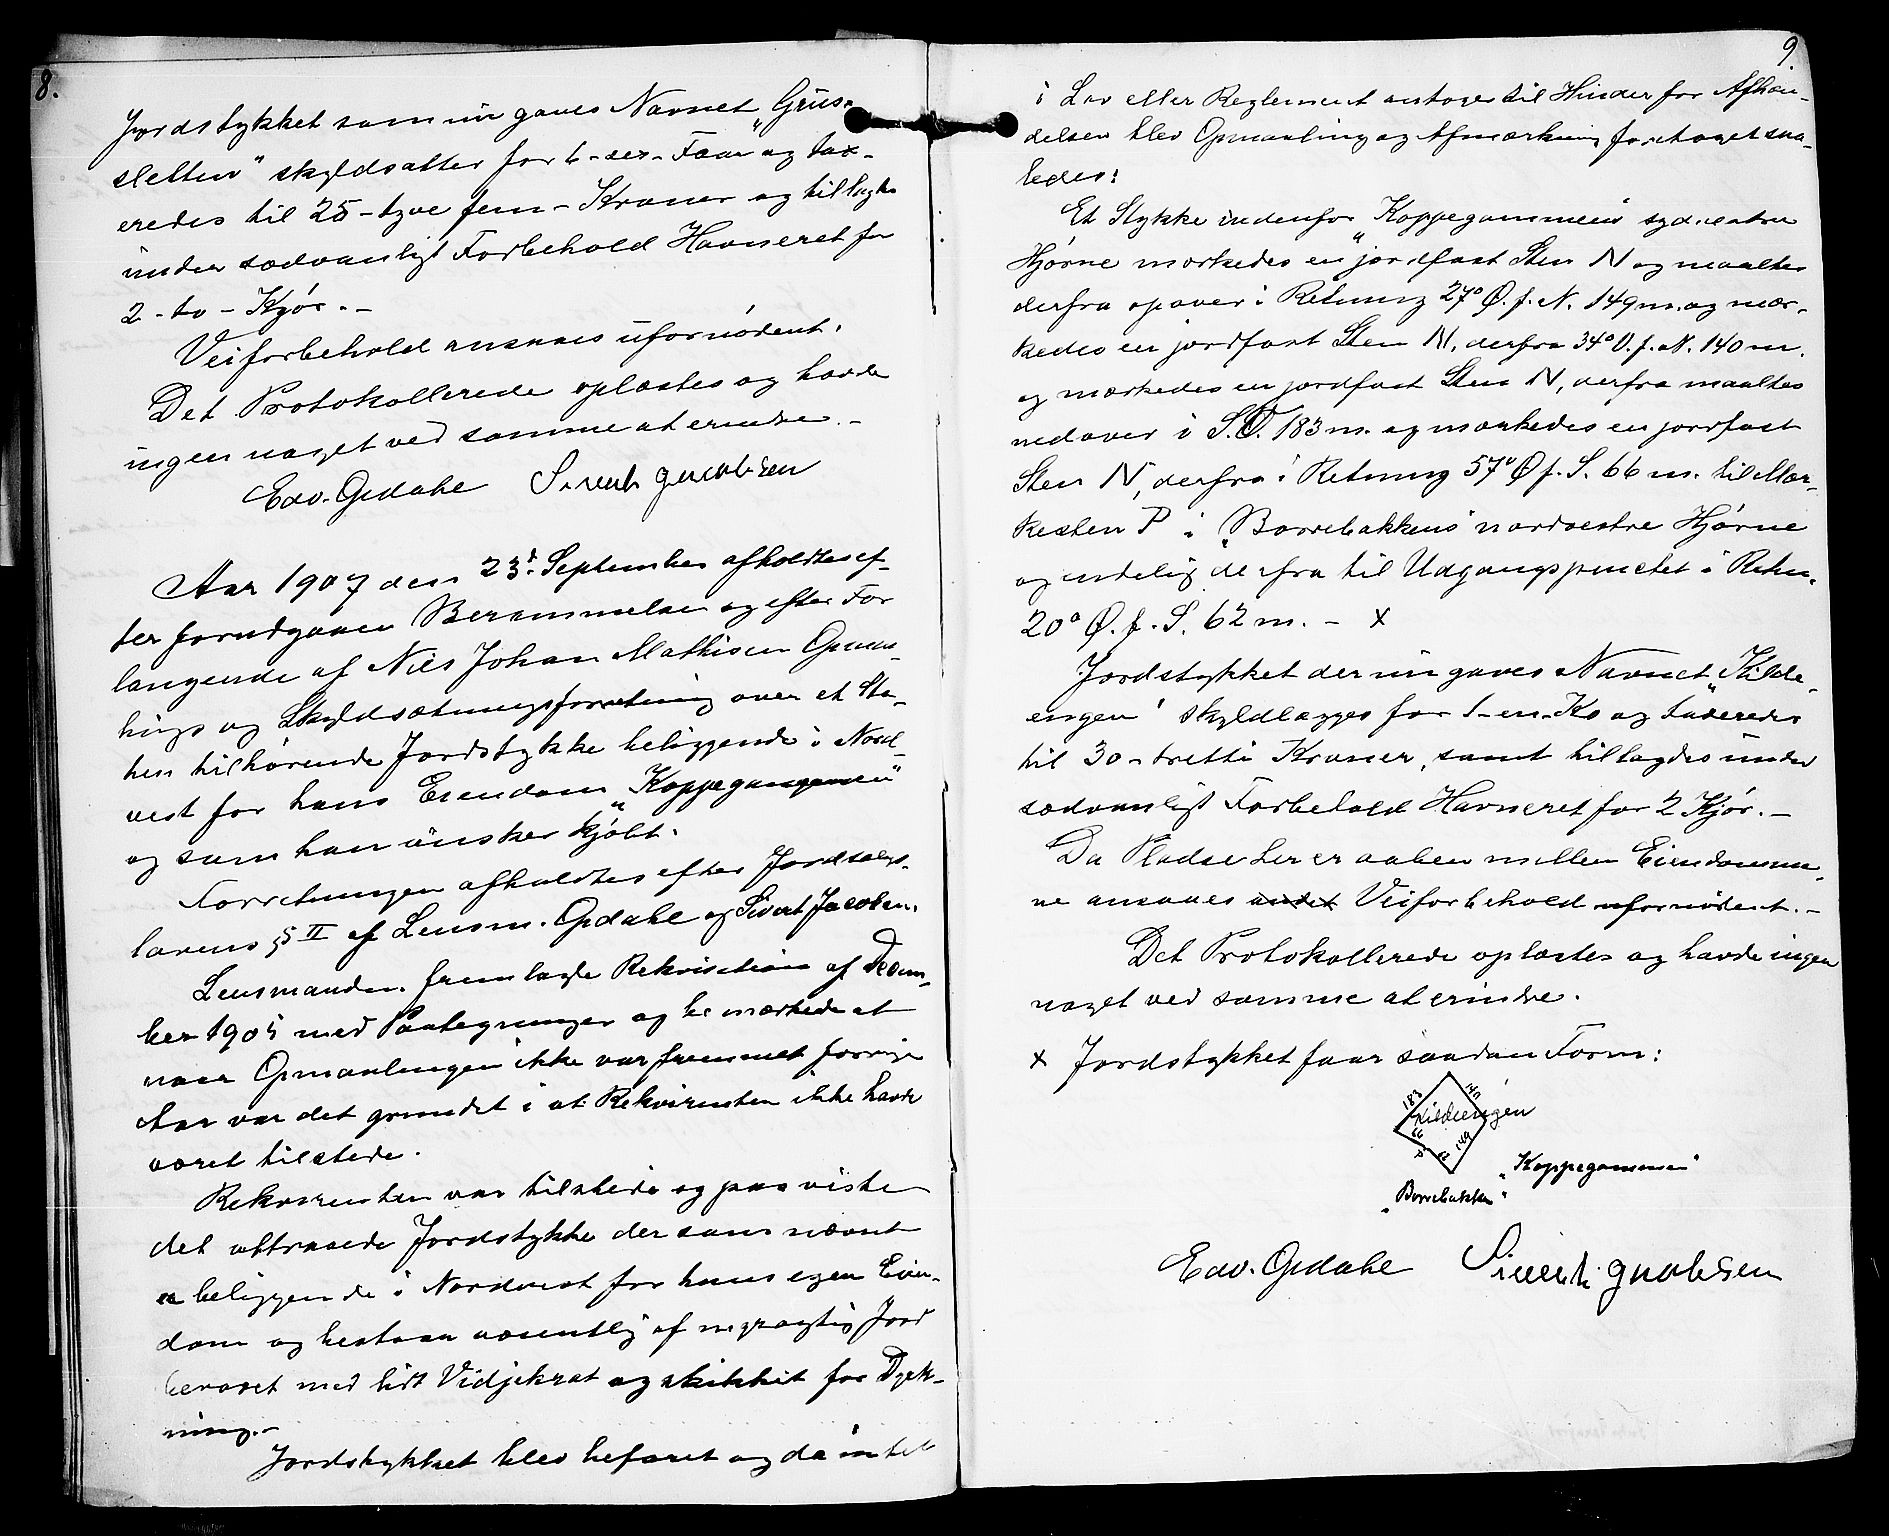 8.
Jordstykket som nu gaves Navnet „Grus-
sletten" skyldsattes for 6-sex-Faar og tax-
eredes til 25-tyve fem-Kroner og tillagdes
under sædvanligt Forbehold Havneret for
2-to-Kjør.-
Veiforbehold ansaaes ufornødent.
Det Protokollerede oplæstes og havde
ingen noget ved samme at erindre.-
Edv. Opdahl Sivert Jacobsen
Aar 1907 den 23d September afholdtes ef-
ter forudgaaen Berammelse og efter For
langende af Nils Johan Mathisen Opmaa-
lings og Skyldsætningsforretning over et Sta-
ten tilhørende Jordstykke beliggende i Nord-
vest for hans Eiendom „Koppegammen"
og som han ønsker kjøbt.
Forretningen afholdtes efter Jordsalgs-
lovens § II af Lensm. Opdahl og Sivert Jacobsen.
Lensmanden fremlagde Rekvisition af Decem-
ber 1905 med Paategninger og bemærkede at
naar Opmaalingen ikke var fremmet forrige
Aar var det grundet i at Rekvirenten ikke havde
været tilstede.
Rekvirenten var tilstede og paaviste
det attraaede Jordstykke der som nævnt
er beliggende i Nordvest for hans egen Eien-
dom og bestaar væsentlig af myragtig Jord
bevoxet med lidt Vidjekrat og skikket for Dyrk-
ning.-
Jordstykket blev befaret og da intet
9.
i Lov eller Reglement antoges til Hinder for Afhæn-
delsen blev Opmaaling og Afmærkning foretaget saa-
ledes:
Et Stykke indenfor „Koppegammens" sydvestre
Hjørne mærkedes en jordfast Sten N og maaltes
derfra opover i Retning 27° Ø. f. N. 149 m. og mær-
kedes en jordfast Sten N, derfra 34° V. f. N. 140 m.
og mærkedes en jordfast Sten N, derfra maaltes
nedover i S.Ø. 183 m. og mærkedes en jordfast
Sten N, derfra i Retning 57° Ø f. S. 66 m. til Mær-
kesten P i „Borrebakkens" nordvestre Hjørne
og endelig derfra til Udgangspunctet i Retn.
20° Ø. f. S. 62 m. - x
Jordstykket der nu gaves Navnet „Kilde-
engen" skyldlægges for 1-en-Ko og taxeredes
til 30-tretti Kroner, samt tillagdes under
sædvanligt Forbehold Havneret for 2 Kjør.-
Da Pladse her er aaben mellem Eiendomme-
ne ansaaes andet Veiforbehold ufornødent.-
Det Protokollerede oplæstes og havde ingen
noget ved samme at erindre.
x Jordstykket faar saadan Form:
183 140
Kildeengen
66 149
P N
„Koppegammen"
„Borrebakken"
Edv. Opdahl Sivert Jacobsen